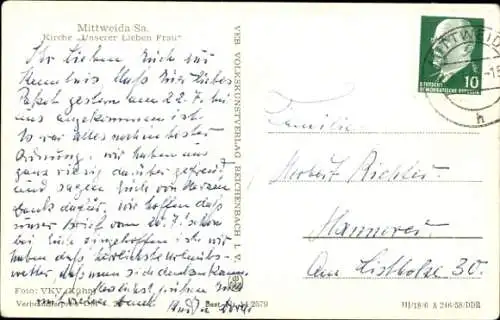 Mittweida Sa.
Kirche „Unserer Lieben Frau"
Ihr Lieben Euch zur
Kenntnis daß hier liebes
Paket gestern am 22.7. bei
uns angekommen ist
Es war alles noch in bester
Ordnung. wir haben uns
ganz riesig darüber gefreut
und sagen Euch von Herzen
dank dafür. Wir hoffen daß
unser Brief vom 20.7. schon
bei Euch eingetroffen ist. wir
haben das herrlichste Urlaubs-
wetter, daß man sich denken kann.
Herzlichst grüßen Euch
mit vielem Dank
Foto: VKV (Kühn)
Best.-Nr.
VEB VOLKSKUNSTVERLAG REICHENBACH I. V.
DEUTSCHE
DEMOKRATISCHE REPUBLIK
10
MITTWEIDA
h
Familie
Herbert Richter
Hannover
Am Listholze 30.
III/18/6 A 246/58/DDR